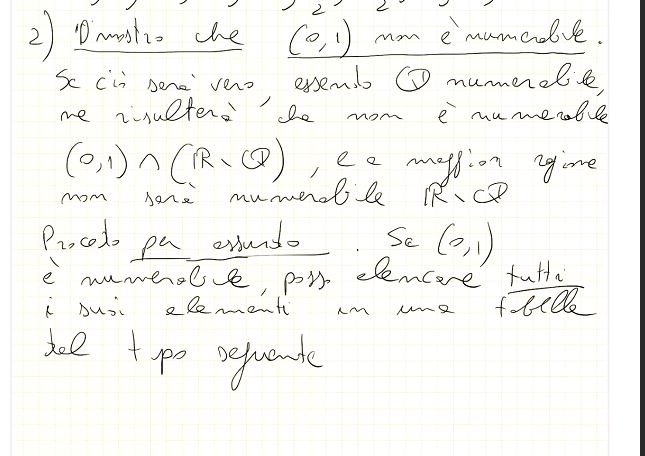 2) Dimostro che (0,1) non è numerabile.
Se ciò sarà vero, essendo ℚ numerabile,
ne risulterà che non è numerabile
(0,1) ∩ (ℝ \ ℚ), e a maggior ragione
non sarà numerabile ℝ \ ℚ
Procedo per assurdo. Se (0,1)
è numerabile, posso elencare tutti
i suoi elementi in una tabella
del tipo seguente